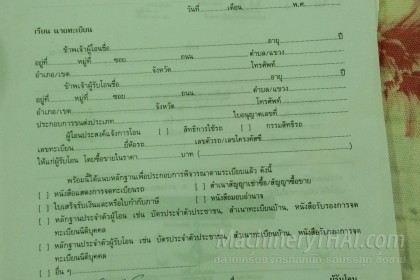 วันที่..........เดือน....................พ.ศ...........
เรียน นายทะเบียน
ข้าพเจ้าผู้โอนชื่อ..............................อายุ..........ปี
อยู่ที่..........หมู่ที่..........ซอย..........ถนน..........ตำบล/แขวง..........
อำเภอ/เขต....................จังหวัด....................โทรศัพท์..........
ข้าพเจ้าผู้รับโอนชื่อ..............................อายุ..........ปี
อยู่ที่..........หมู่ที่..........ซอย..........ถนน..........ตำบล/แขวง..........
อำเภอ/เขต....................จังหวัด....................โทรศัพท์..........
ประกอบการขนส่งประเภท....................ใบอนุญาตเลขที่..........
ผู้โอนประสงค์แจ้งการโอน [ ] สิทธิการใช้รถ [ ] กรรมสิทธิ์รถ
เลขทะเบียน..........ยี่ห้อรถ..........เลขตัวรถ/เลขโครงคัสซี..........
ให้แก่ผู้รับโอน โดยซื้อขายในราคา..........บาท (....................
พร้อมนี้ได้แนบหลักฐานเพื่อประกอบการพิจารณาตามระเบียบแล้ว ดังนี้
[ ] หนังสือแสดงการจดทะเบียนรถ [ ] สำเนาสัญญาเช่าซื้อ/สัญญาซื้อขาย
[ ] ใบเสร็จรับเงินและหรือใบกำกับภาษี [ ] หนังสือมอบอำนาจ
[ ] หลักฐานประจำตัวผู้โอน เช่น บัตรประจำตัวประชาชน, สำเนาทะเบียนบ้าน, หนังสือรับรองการจด
ทะเบียนนิติบุคคล
[ ] หลักฐานประจำตัวผู้รับโอน เช่น บัตรประจำตัวประชาชน, สำเนาทะเบียนบ้าน, หนังสือรับรองการจด
ทะเบียนนิติบุคคล
[ ] อื่น ๆ
MachineryTHAI.com